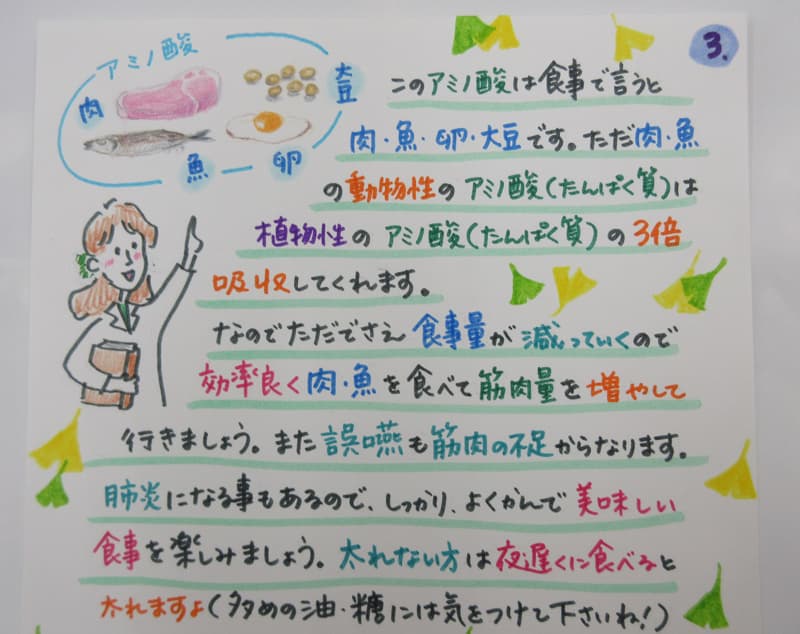 アミノ酸
肉
大豆
魚
卵
3.
このアミノ酸は食事で言うと
肉・魚・卵・大豆です。ただ肉・魚
の動物性のアミノ酸(たんぱく質)は
植物性のアミノ酸(たんぱく質)の3倍
吸収してくれます。
なのでただでさえ食事量が減っていくので
効率良く肉・魚を食べて筋肉量を増やして
行きましょう。また誤嚥も筋肉の不足からなります。
肺炎になる事もあるので、しっかり、よくかんで美味しい
食事を楽しみましょう。太れない方は夜遅くに食べると
太れますよ(多めの油・糖には気をつけて下さいね!)